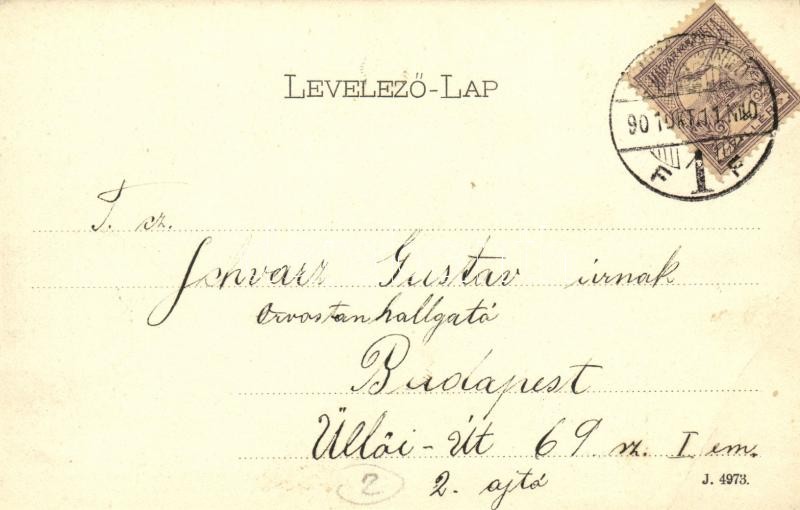 LEVELEZŐ-LAP
901 OKT. 11 N10
F 1 F
T. cz.
Schvarz Gustav úrnak
Orvostanhallgató
Budapest
Üllői-Út 69 sz. I em.
2. ajtó
2
J. 4973.